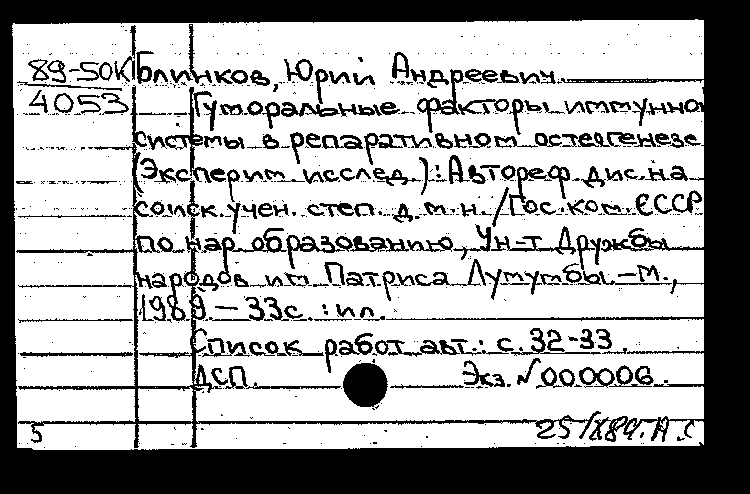 89-50К Блинков, Юрий Андреевич.
4053 Гуморальные факторы иммунно
системы в репаративном остеогенезе
(Эксперим. исслед.) : Автореф. дис. на
соиск. учен. степ. д. м. н. / Гос. ком. СССР
по нар. образованию, Ун-т Дружбы
народов им. Патриса Лумумбы. – М.,
1989. – 33с. : ил.
Список работ авт.: с. 32-33.
ДСП. Экз. № 000006.
5 25/X89г. А.С